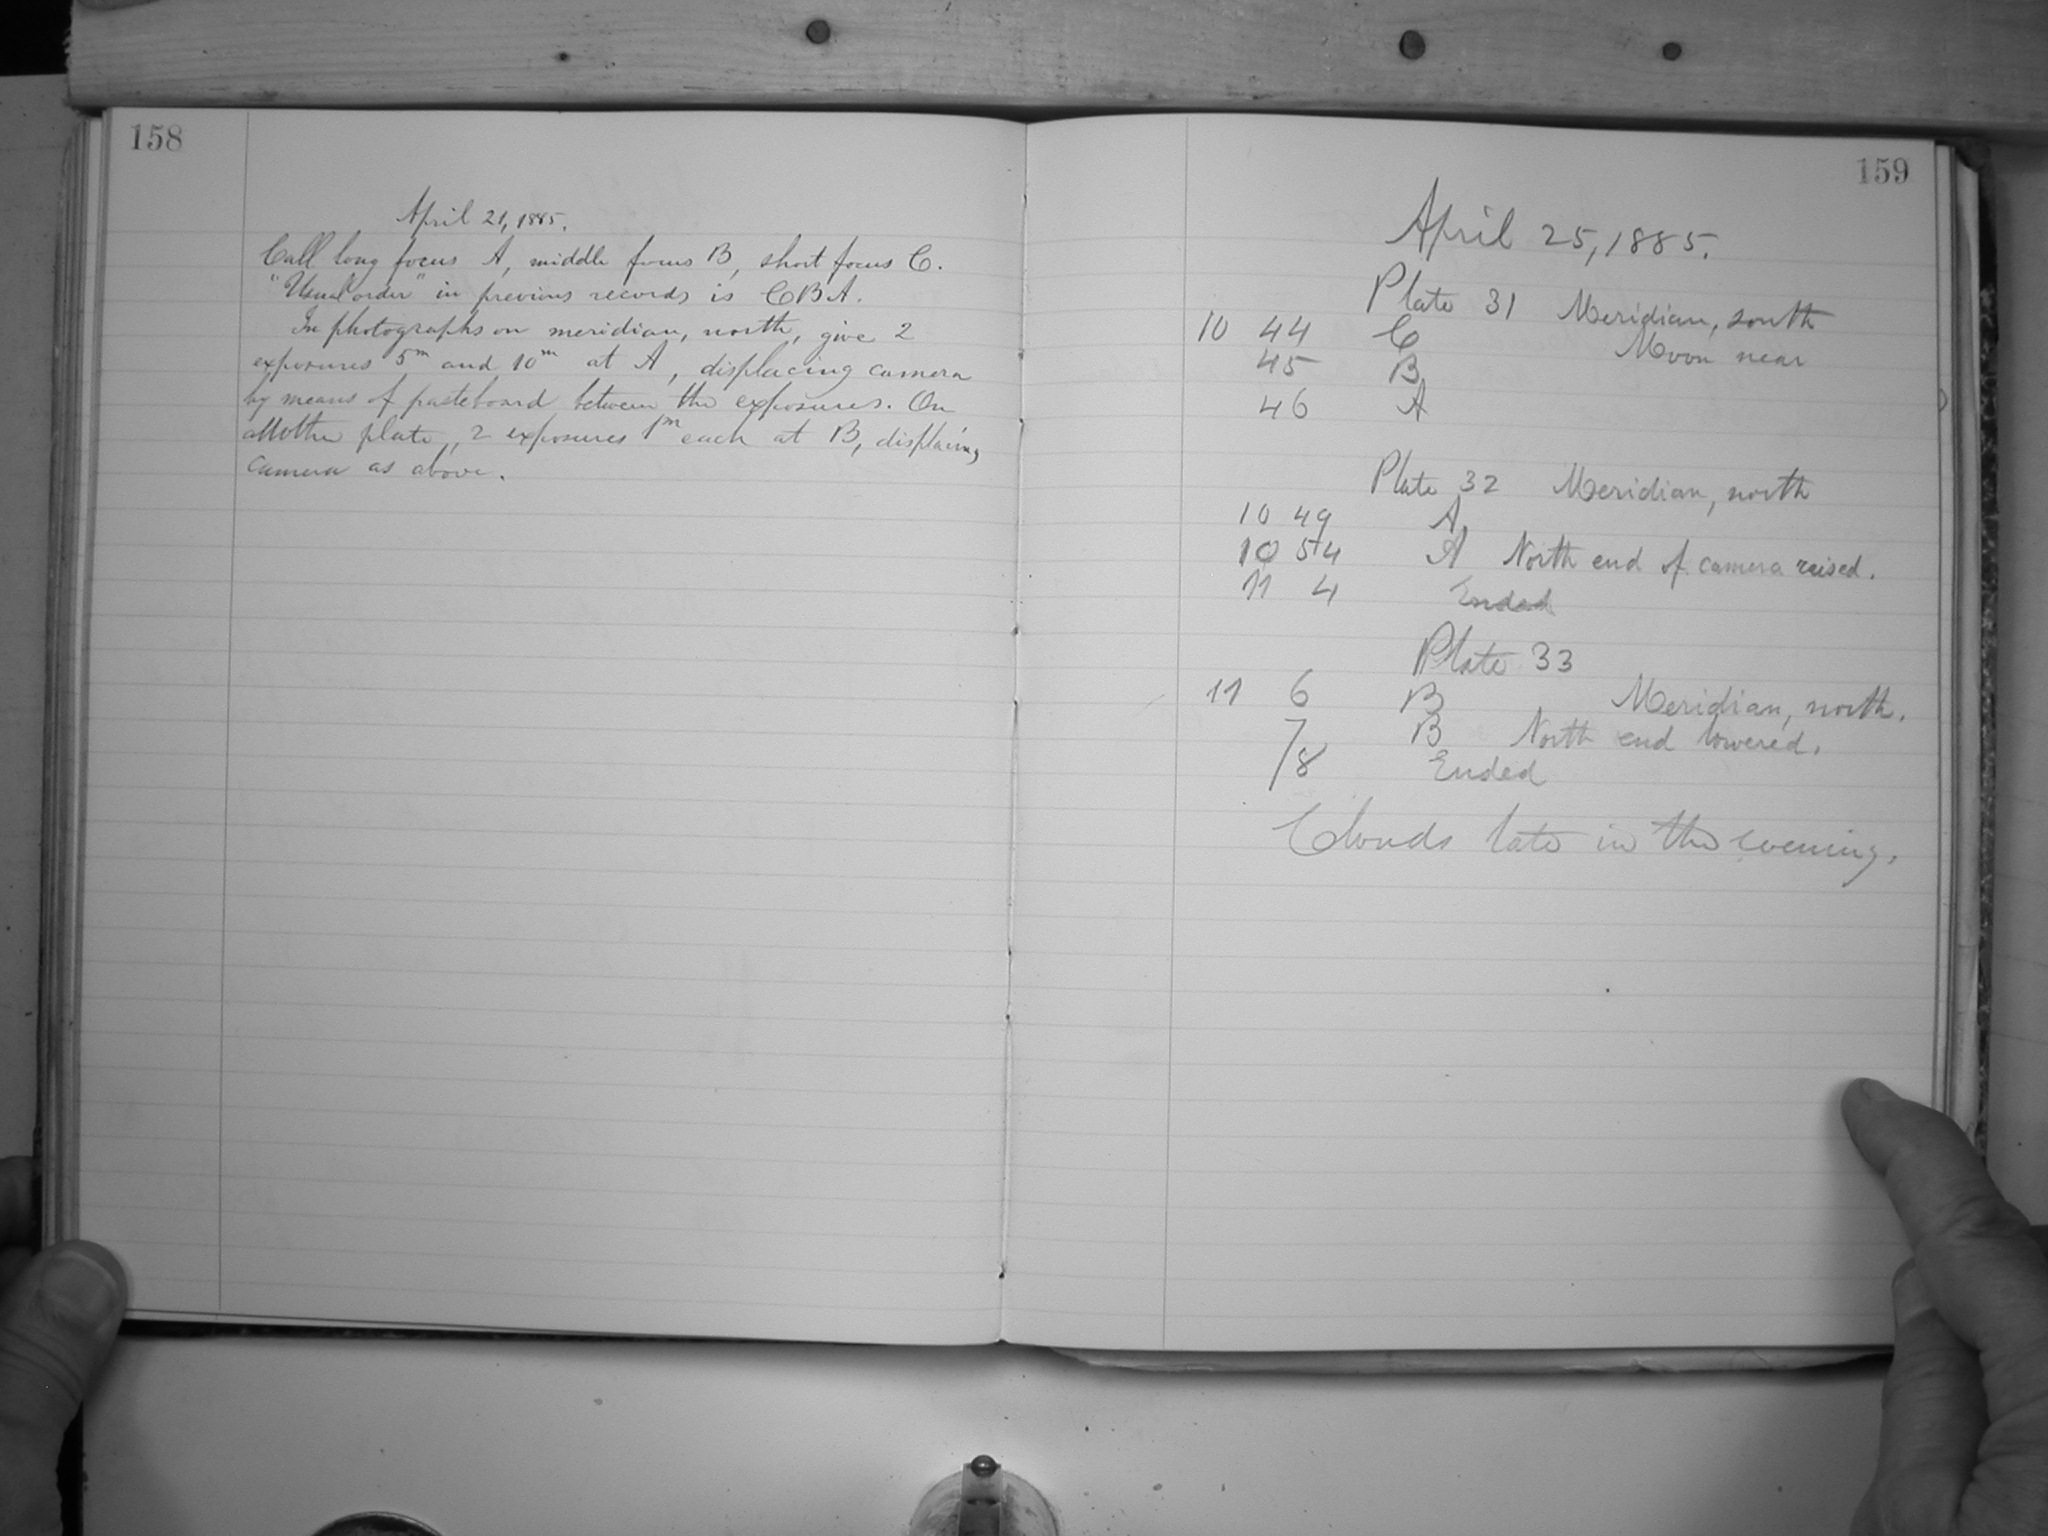 158
April 21, 1885.
Call long focus A, middle focus B, short focus C.
"Usual order" in previous records is C B A.
In photographs on meridian, north, give 2
exposures 5m and 10m at A, displacing camera
by means of pasteboard between the exposures. On
another plate, 2 exposures 1m each at B, displacing
camera as above.
159
April 25, 1885.
Plate 31 Meridian, south
10 44 C Moon near
45 B
46 A
Plate 32 Meridian, north
10 49 A
10 54 A North end of camera raised.
11 4 Ended
Plate 33
11 6 B Meridian, north.
7 B North end lowered.
8 Ended
Clouds late in the evening.